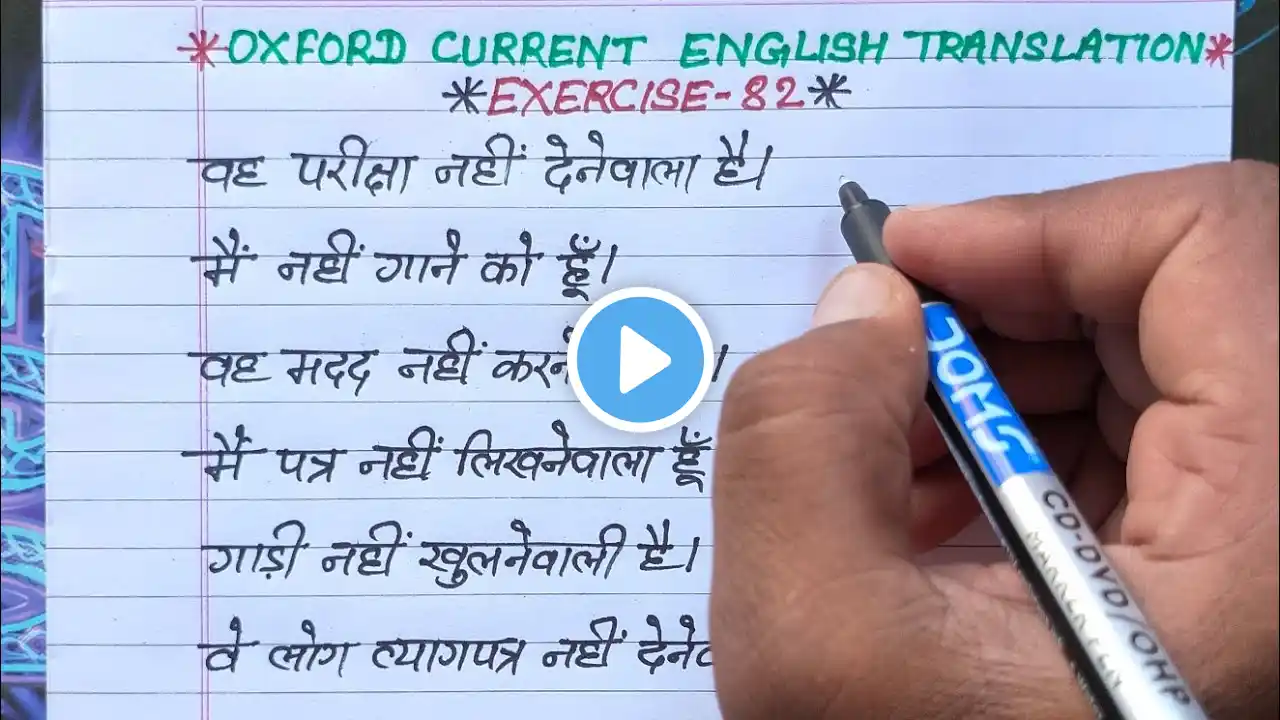 *OXFORD CURRENT ENGLISH TRANSLATION*
*EXERCISE-82*
वह परीक्षा नहीं देनेवाला है।
मैं नहीं गाने को हूँ।
वह मदद नहीं
मैं पत्र नहीं लिखनेवाला हूँ
गाड़ी नहीं खुलनेवाली है।
वे लोग त्यागपत्र नहीं
DOMS
CD-DVD/OHP